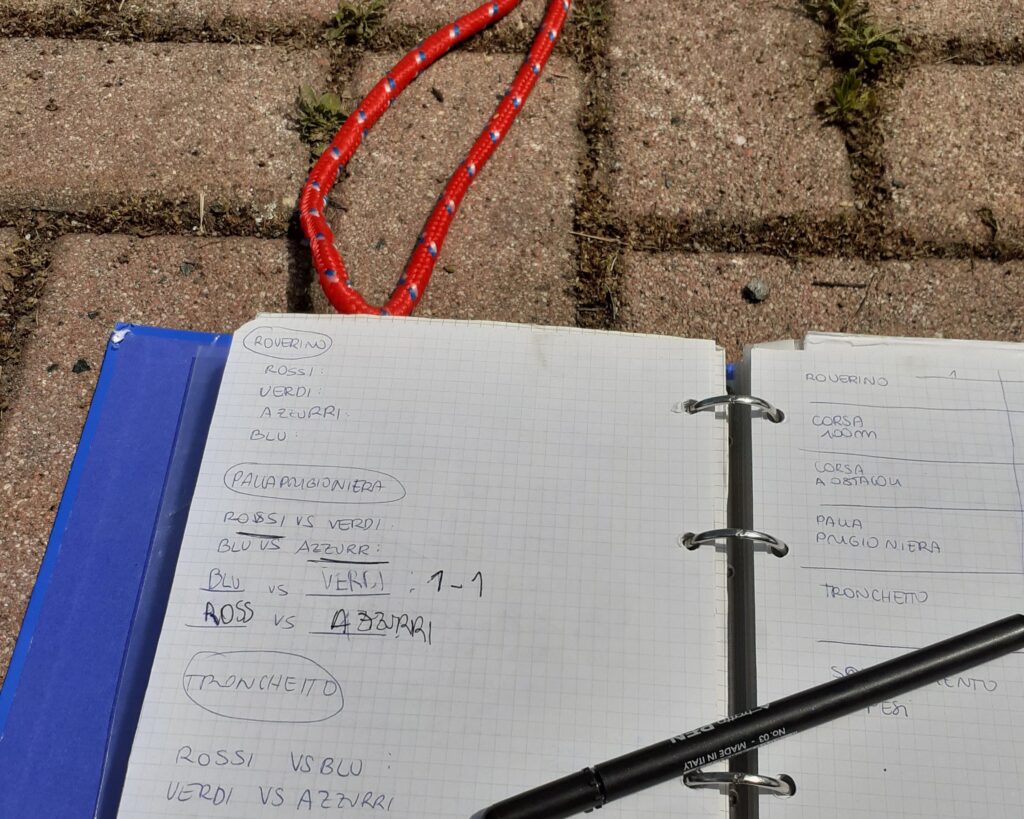 ROVERINO
ROSSI:
VERDI:
AZZURRI:
BLU:
PALLAPRIGIONIERA
ROSSI VS VERDI:
BLU VS AZZURR:
BLU VS VERDI: 1-1
ROSS VS AZZURRI
TRONCHETTO
ROSSI VS BLU:
VERDI VS AZZURRI
ROVERINO 1
CORSA
100m
CORSA
A OSTACOLI
PALLA
PRIGIONIERA
TRONCHETTO
PESI
No. 03 - MADE IN ITALY